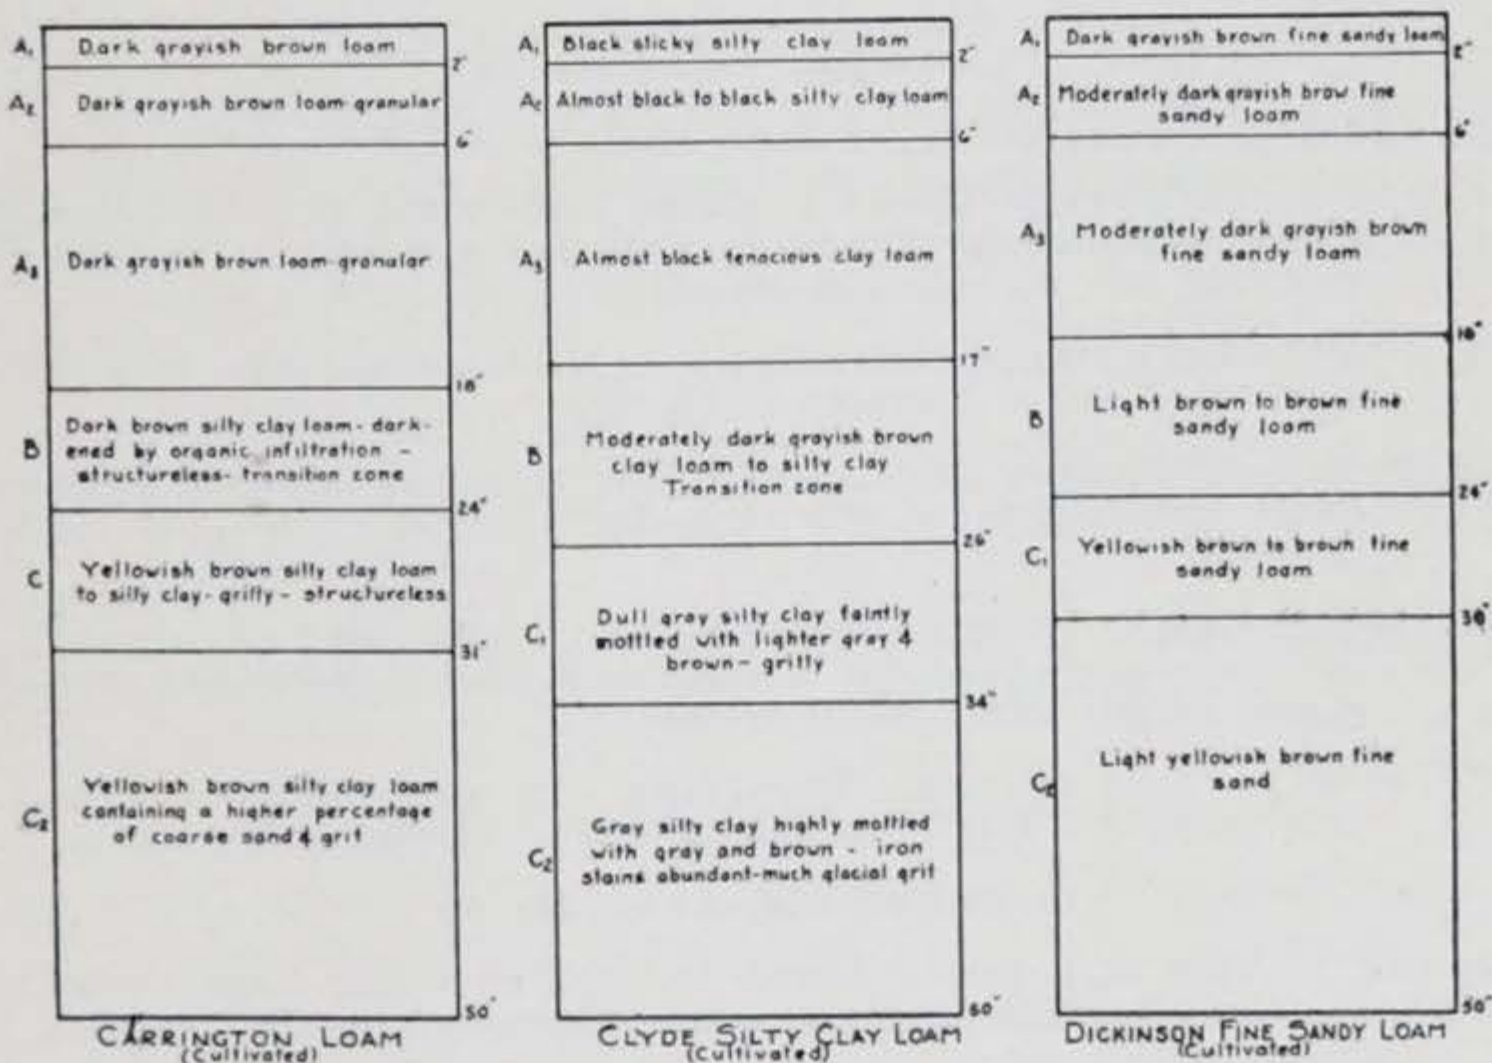 A₁ Dark grayish brown loam
2"
A₂ Dark grayish brown loam-granular
6"
A₃ Dark grayish brown loam-granular
18"
B
Dark brown silty clay loam - dark-
ened by organic infiltration -
structureless - transition zone
24"
C
Yellowish brown silty clay loam
to silty clay - gritty - structureless
31"
C₂
Yellowish brown silty clay loam
containing a higher percentage
of coarse sand & grit
50"
CARRINGTON LOAM
(Cultivated)
A₁ Black sticky silty clay loam
2"
A₂ Almost black to black silty clay loam
6"
A₃ Almost black tenacious clay loam
17"
B
Moderately dark grayish brown
clay loam to silty clay
Transition zone
26"
C₁
Dull gray silty clay faintly
mottled with lighter gray &
brown - gritty
34"
C₂
Gray silty clay highly mottled
with gray and brown - iron
stains abundant - much glacial grit
50"
CLYDE SILTY CLAY LOAM
(Cultivated)
A₁ Dark grayish brown fine sandy loam
2"
A₂ Moderately dark grayish brow fine
sandy loam
6"
A₃ Moderately dark grayish brown
fine sandy loam
16"
B
Light brown to brown fine
sandy loam
24"
C₁
Yellowish brown to brown fine
sandy loam
30"
C₂
Light yellowish brown fine
sand
50"
DICKINSON FINE SANDY LOAM
(Cultivated)